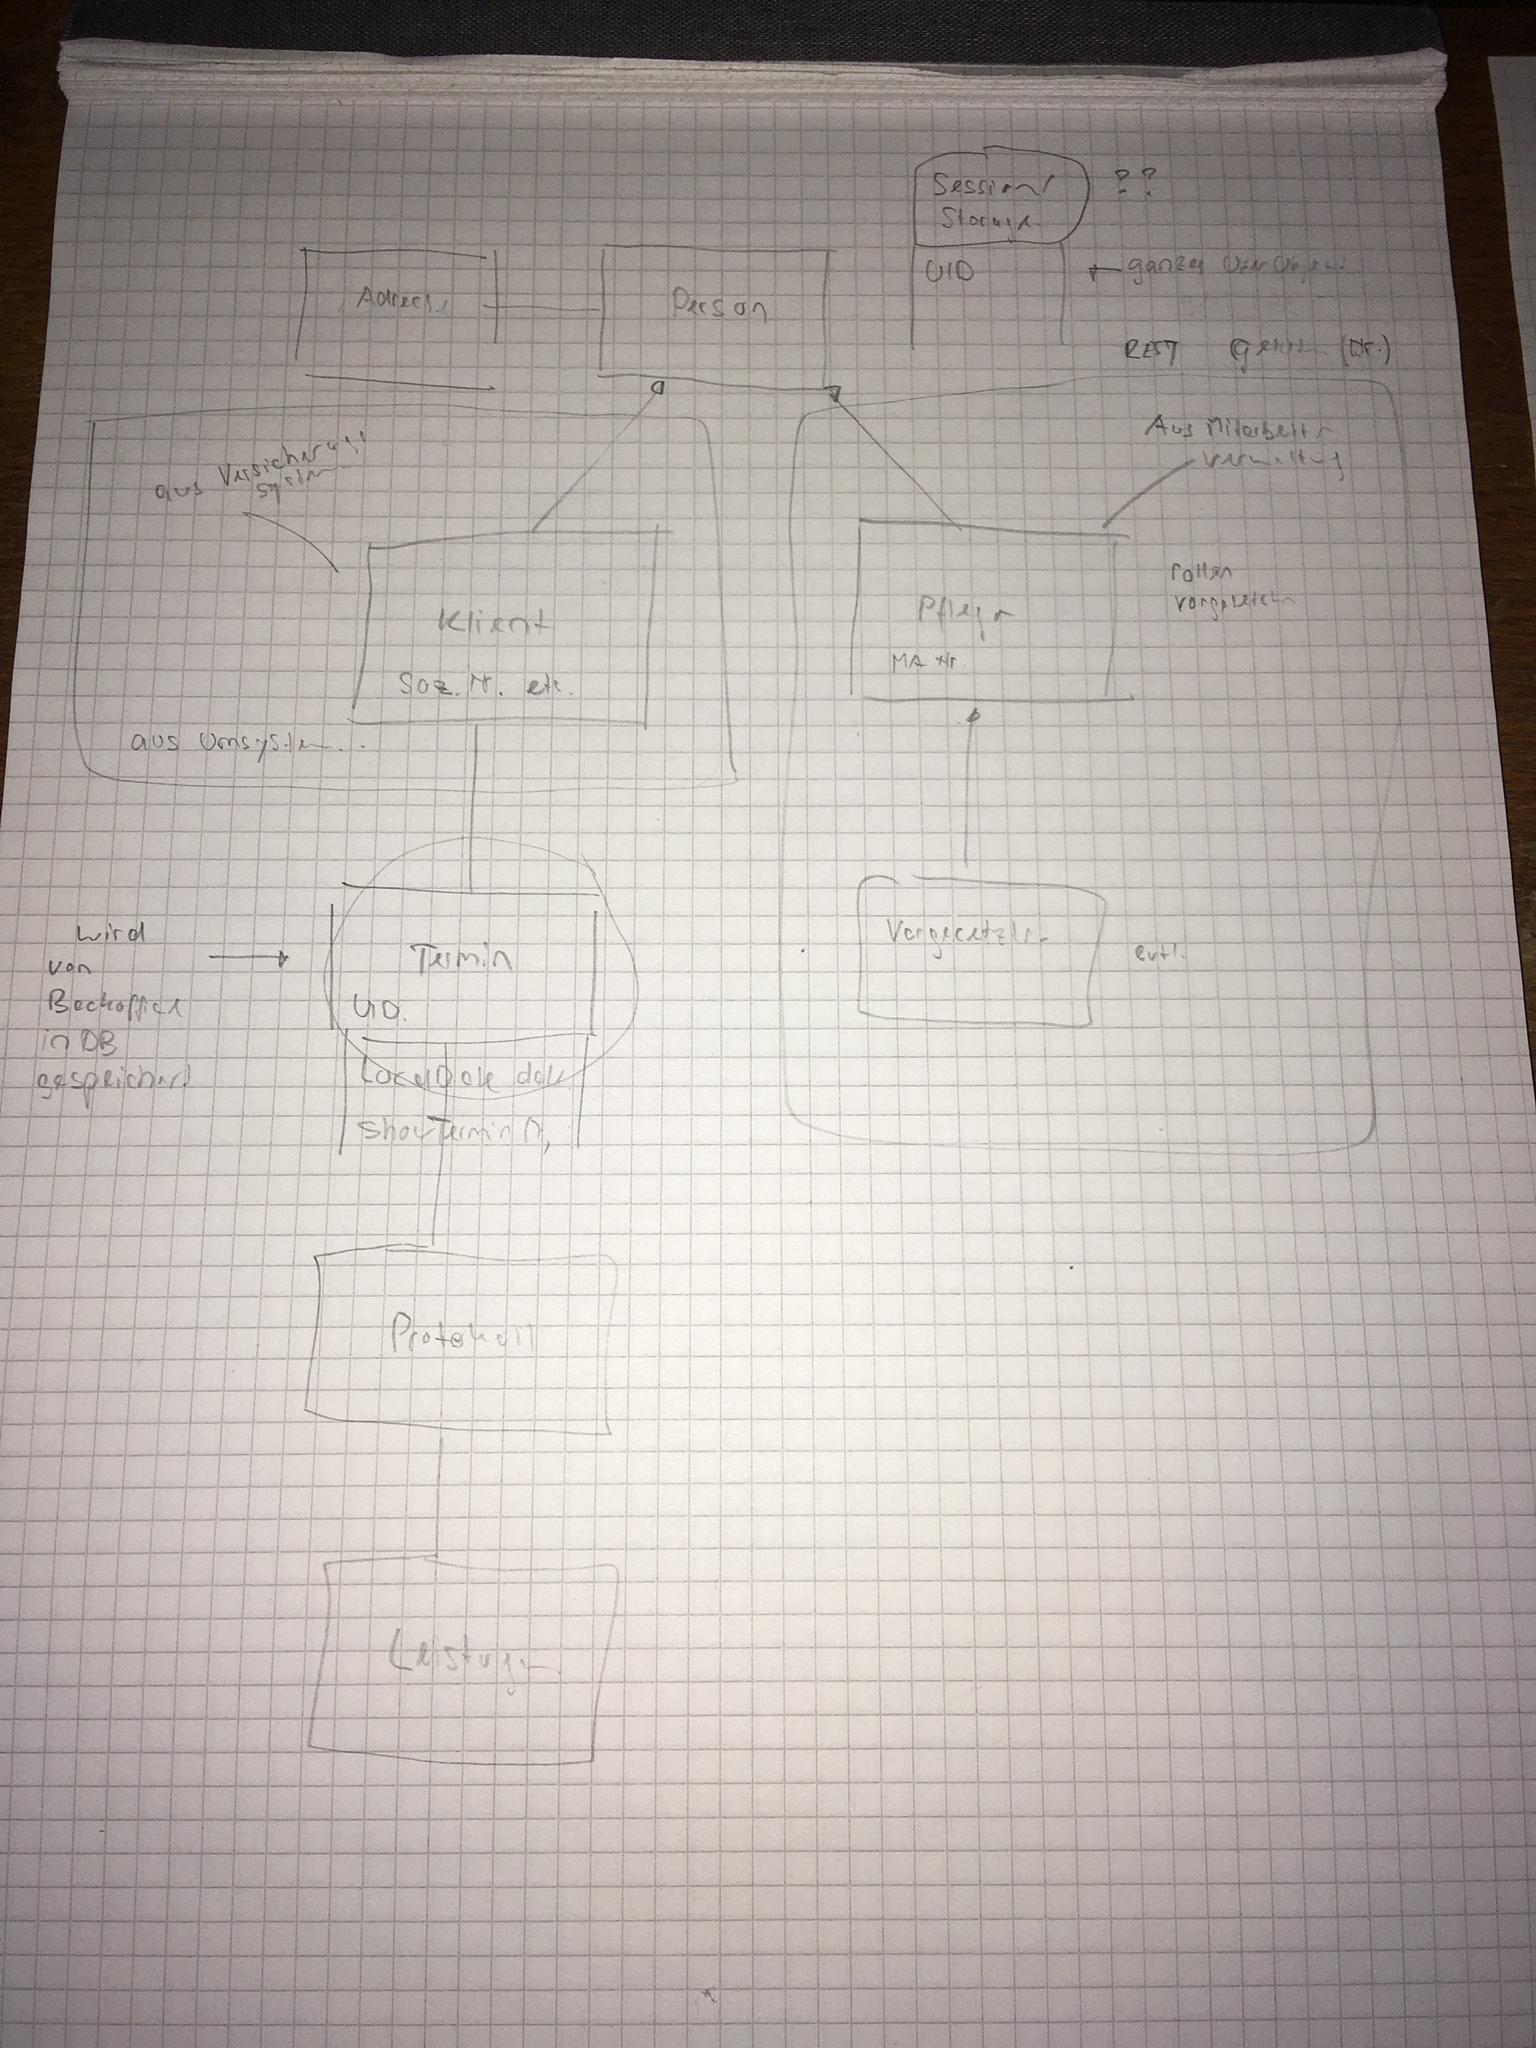 Session/
Storage
??
UID
ganzes
Adresse
Person
REST
(Nr.)
aus Versicherungs
system
Aus Mitarbeiter
verwaltung
Klient
Soz. Nr. etc.
aus Umsystem...
Pfleger
MA Nr.
rollen
vorgesetzter
wird
von
Backoffice
in DB
gespeichert
Termin
UID.
LocalDate date
showTermin();
Vorgesetzter
evtl.
Protokoll
Leistungen